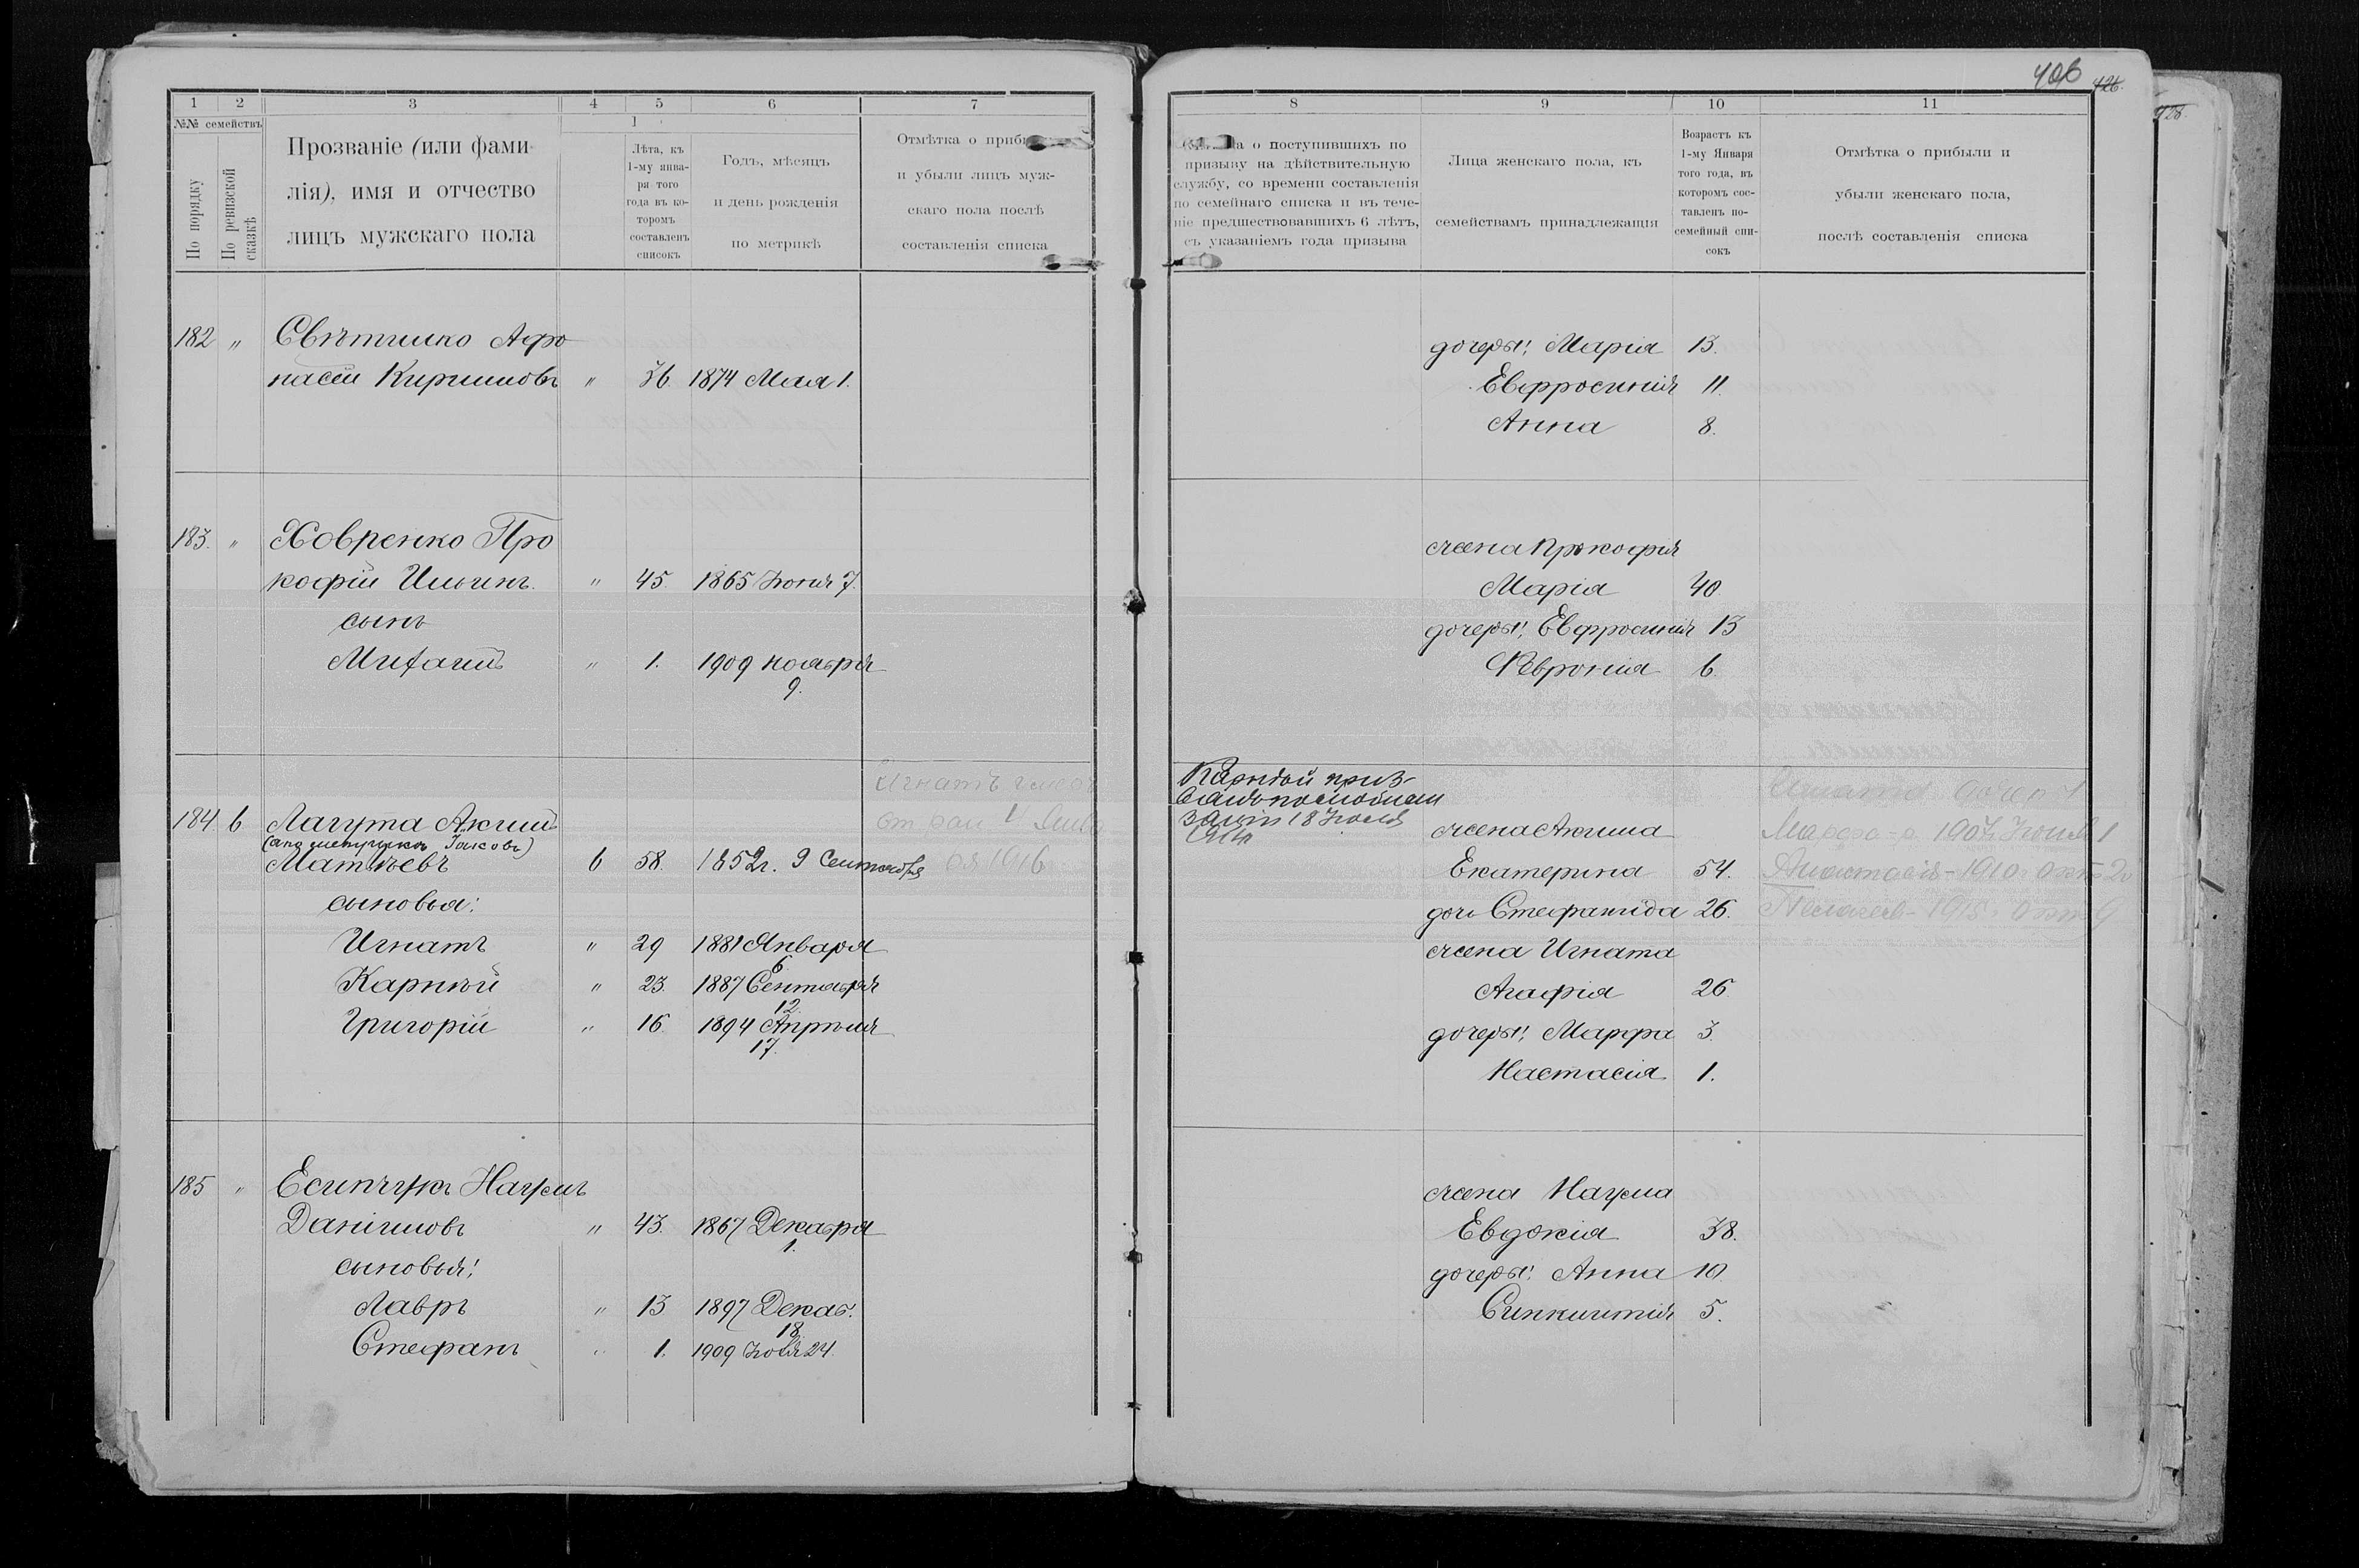 406
426.
428.
1 2 3 4 5 6 7
№№ семействъ
По порядку
По ревизской сказкѣ
Прозваніе (или фами-
лія), имя и отчество
лицъ мужскаго пола
1
Лѣта, къ
1-му янва-
ря того
года въ ко-
торомъ
составленъ
списокъ
Годъ, мѣсяцъ
и день рожденія
по метрикѣ
Отмѣтка о
и убыли лицъ муж-
скаго пола послѣ
составленія списка
182 „ Свѣтилко Афо
насій Кириловъ „ 36 1874 Мая 1.
183. „ Ховренко Про
кофій Ильинъ. „ 45. 1865 Іюня 7.
сынъ
Михаилъ „ 1. 1909 ноября
9.
Игнатъ
184 6 Лагута Акимъ
Матвѣевъ 6 58. 1852г. 9 Сентября 1916
сыновья:
Игнатъ „ 29 1881 Января
6.
Карпѣй „ 23. 1887 Сентября
12.
Григорій „ 16. 1894 Апрѣля
17.
185 „ Есипчукъ Наумъ
Даніиловъ „ 43. 1867 Декабря
1.
сыновья:
Лавръ „ 13 1897 Декаб.
18
Стефанъ „ 1. 1909 Іюля 24.
8 9 10 11
о поступившихъ по
призыву на дѣйствительную
службу, со времени составленія
по семейнаго списка и въ тече-
ніе предшествовавшихъ 6 лѣтъ,
съ указаніемъ года призыва
Лица женскаго пола, къ
семействамъ принадлежащія
Возрастъ къ
1-му Января
того года, въ
которомъ сос-
тавленъ по-
семейный спи-
сокъ
Отмѣтка о прибыли и
убыли женскаго пола,
послѣ составленія списка
дочери: Марія 13.
Евфросинія 11.
Анна 8.
жена Прокофія
Марія 40
дочери: Евфросинія 13
Февронія 6
18 Іюля
жена Акима Марфа 1907 1
Екатерина 54. Анастасія - 1910 Окт 2
дочь Стефанида 26. 1915 Окт
жена Игната
Агафія 26
дочери: Марфа 3.
Настасія 1.
жена Наума
Евдокія 38.
дочери: Анна 10.
Синклитія 5.